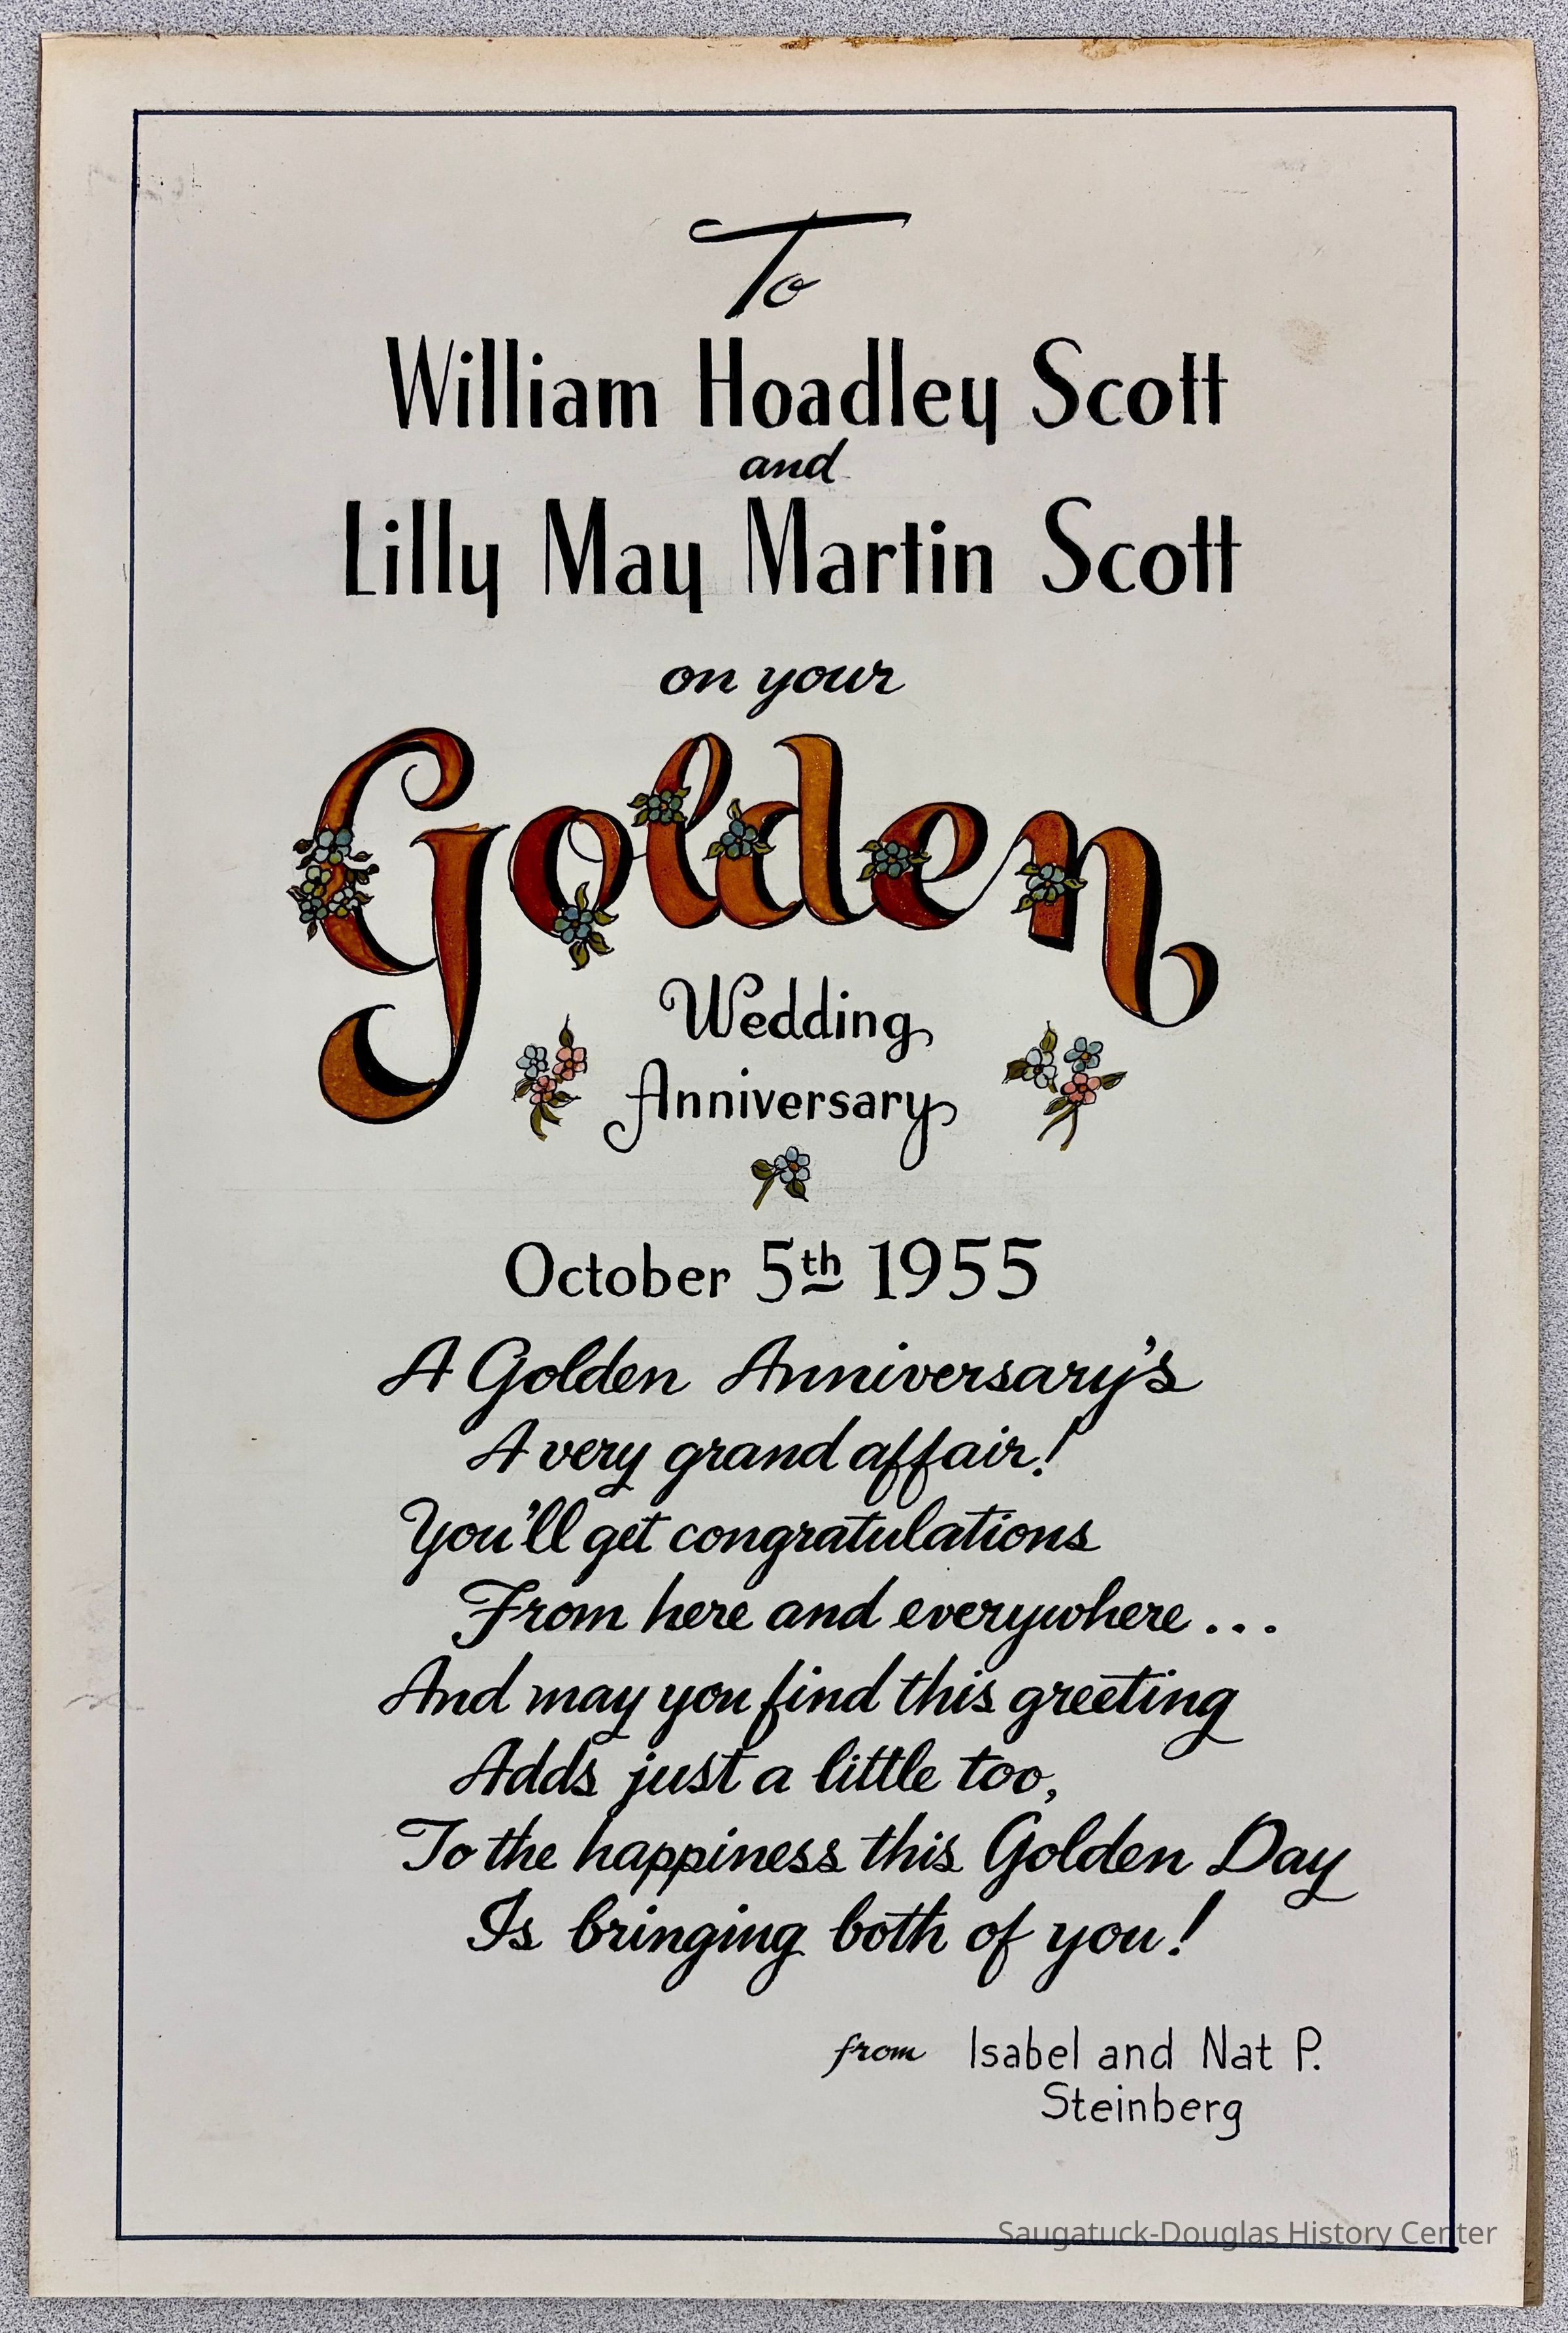 To
William Hoadley Scott
and
Lilly May Martin Scott
on your
Golden
Wedding
Anniversary
October 5th 1955
A Golden Anniversary's
A very grand affair!
You'll get congratulations
From here and everywhere...
And may you find this greeting
Adds just a little too,
To the happiness this Golden Day
Is bringing both of you!
from Isabel and Nat P.
Steinberg
Saugatuck-Douglas History Center